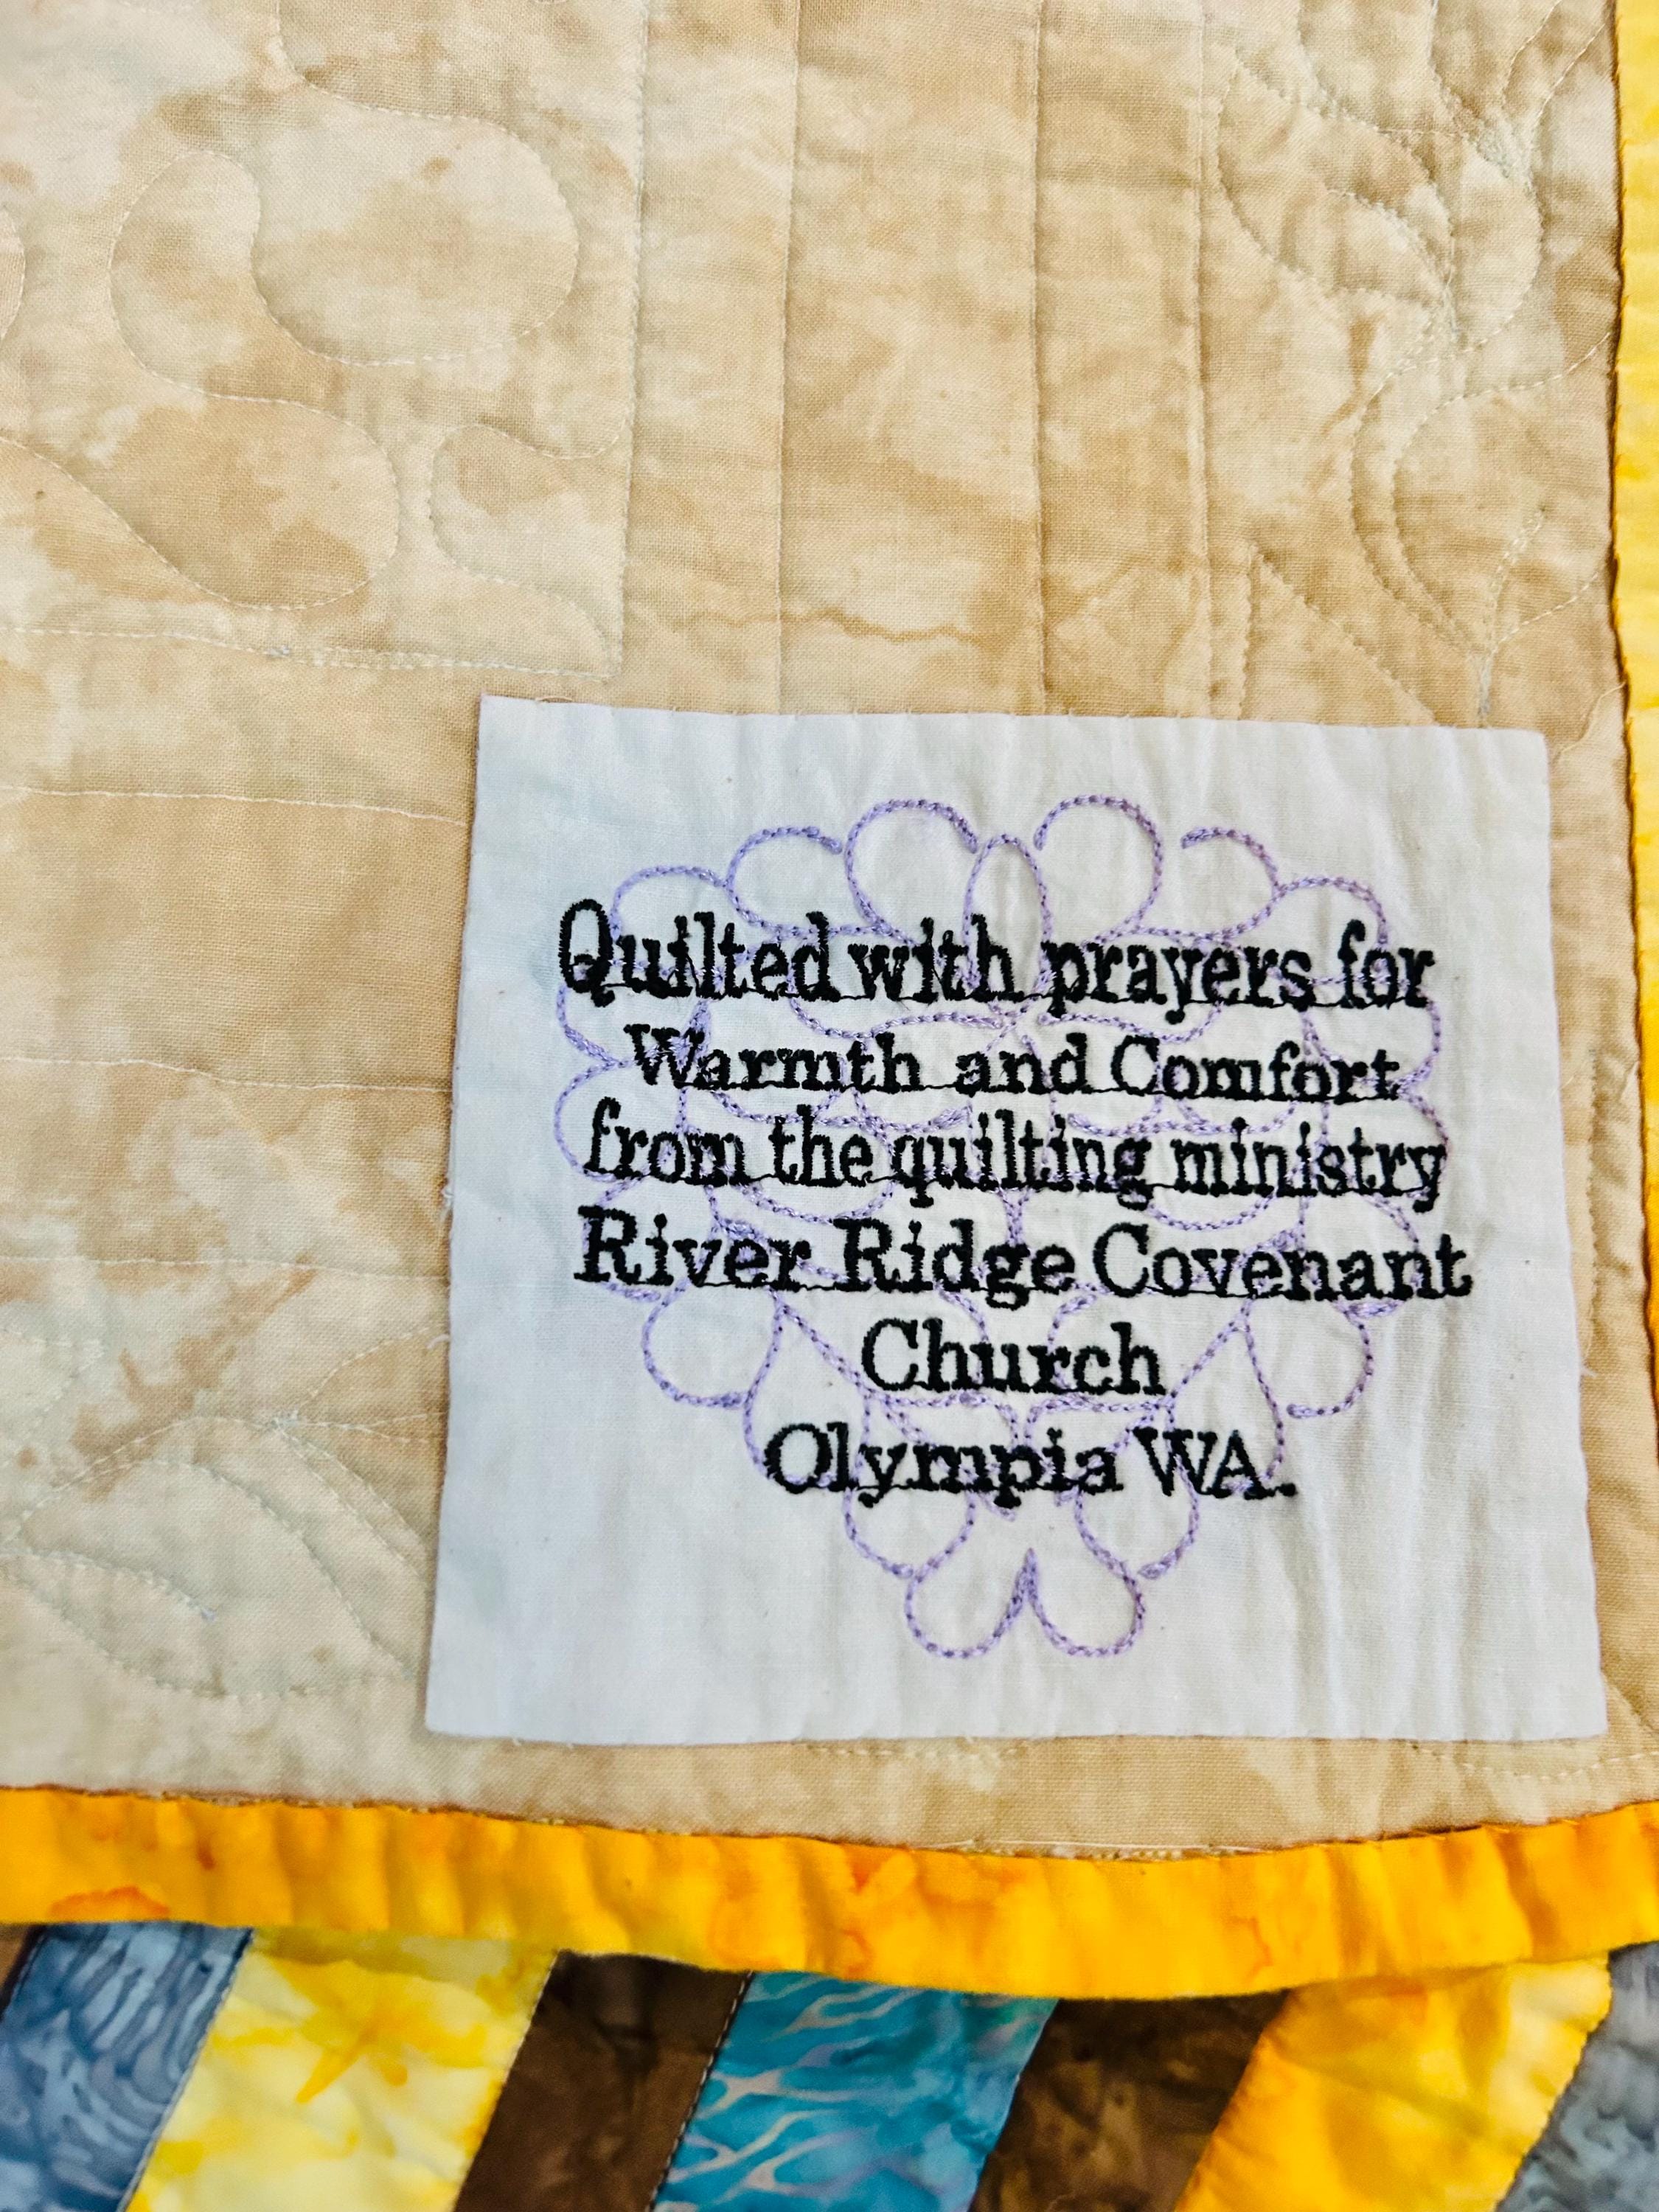 Quilted with prayers for
Warmth and Comfort
from the quilting ministry
River Ridge Covenant
Church
Olympia WA.